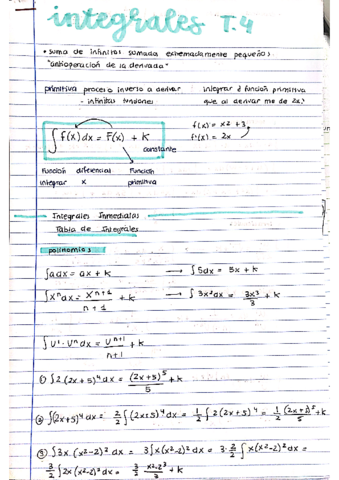 integrales T.4
• suma de infinitos sumada extremadamente pequeños
"antioperación de la derivada"
primitiva proceso inverso a derivar
- infinitas
integrar ¿función primitiva
que al derivar me de 2x?
∫f(x)dx = F(x) + K
constante
f(x) = x2 + 3
f'(x) = 2x
función diferencial función
integrar x primitiva
Integrales Inmediatas
Tabla de Integrales
polinomios
∫adx = ax + k → ∫5dx = 5x + k
∫xⁿdx = xⁿ⁺¹/n+1 + k → ∫3x²dx = 3x³/3 + k
∫U'·Uⁿdx = Uⁿ⁺¹/n+1 + k
① ∫2(2x+5)⁴dx = (2x+5)⁵/5 + k
② ∫(2x+5)⁴dx = 2/2 ∫(2x+5)⁴dx = 1/2 ∫2(2x+5)⁴ = 1/2 (2x+5)⁵/5 + k
③ ∫3x(x²-2)²dx = 3∫x(x²-2)²dx = 3·2/2 ∫x(x²-2)²dx =
3/2 ∫2x(x²-2)²dx = 3/2 x²-2³/3 + k